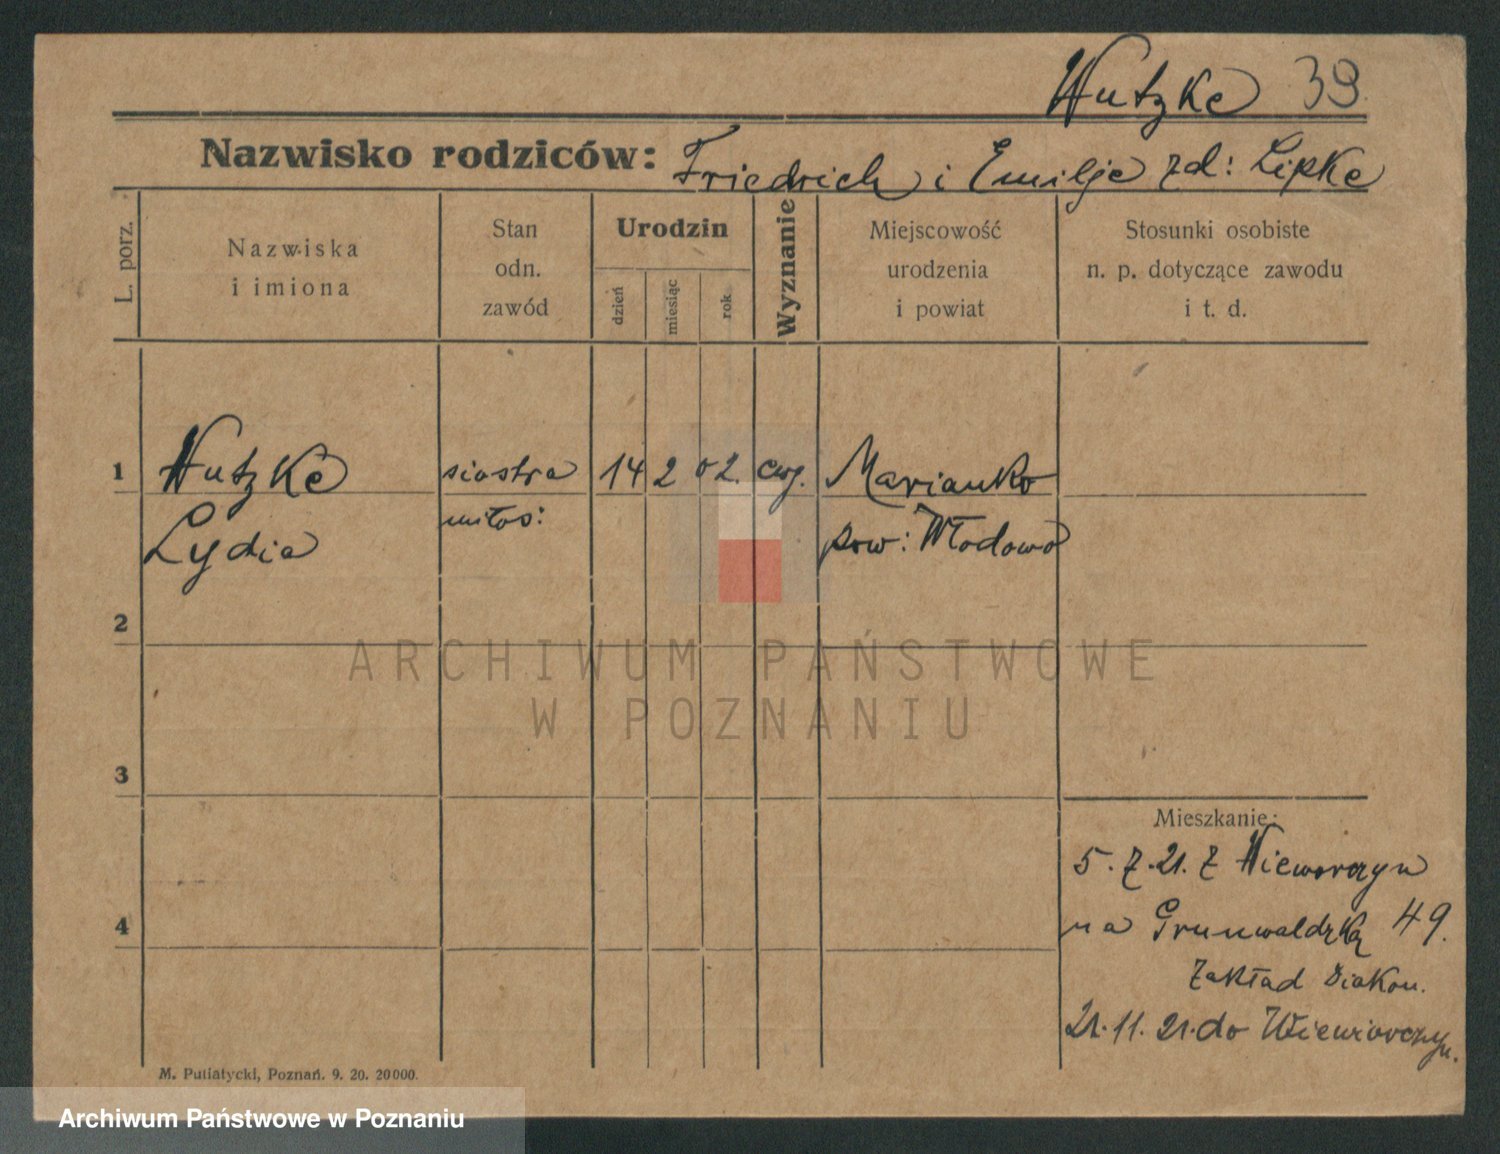 Wutzke 39
Nazwisko rodziców: Friedrich i Emilje zd: Lipke
L. porz.
Nazwiska
i imiona
Stan
odn.
zawód
Urodzin
dzień
miesiąc
rok
Wyznanie
Miejscowość
urodzenia
i powiat
Stosunki osobiste
n. p. dotyczące zawodu
i t. d.
1 Wutzke siostra 14 2 02. ewg. Marianko
Lydia miłos: pow: Włodowo
2
3
4
Mieszkanie:
5. 7. 21. z Wieworczyn
na Grunwaldzką 49.
Zakład Diakon.
21. 11. 21. do Wiewiorczyn.
M. Putiatycki, Poznań. 9. 20. 20000.
ARCHIWUM PAŃSTWOWE
W POZNANIU
Archiwum Państwowe w Poznaniu